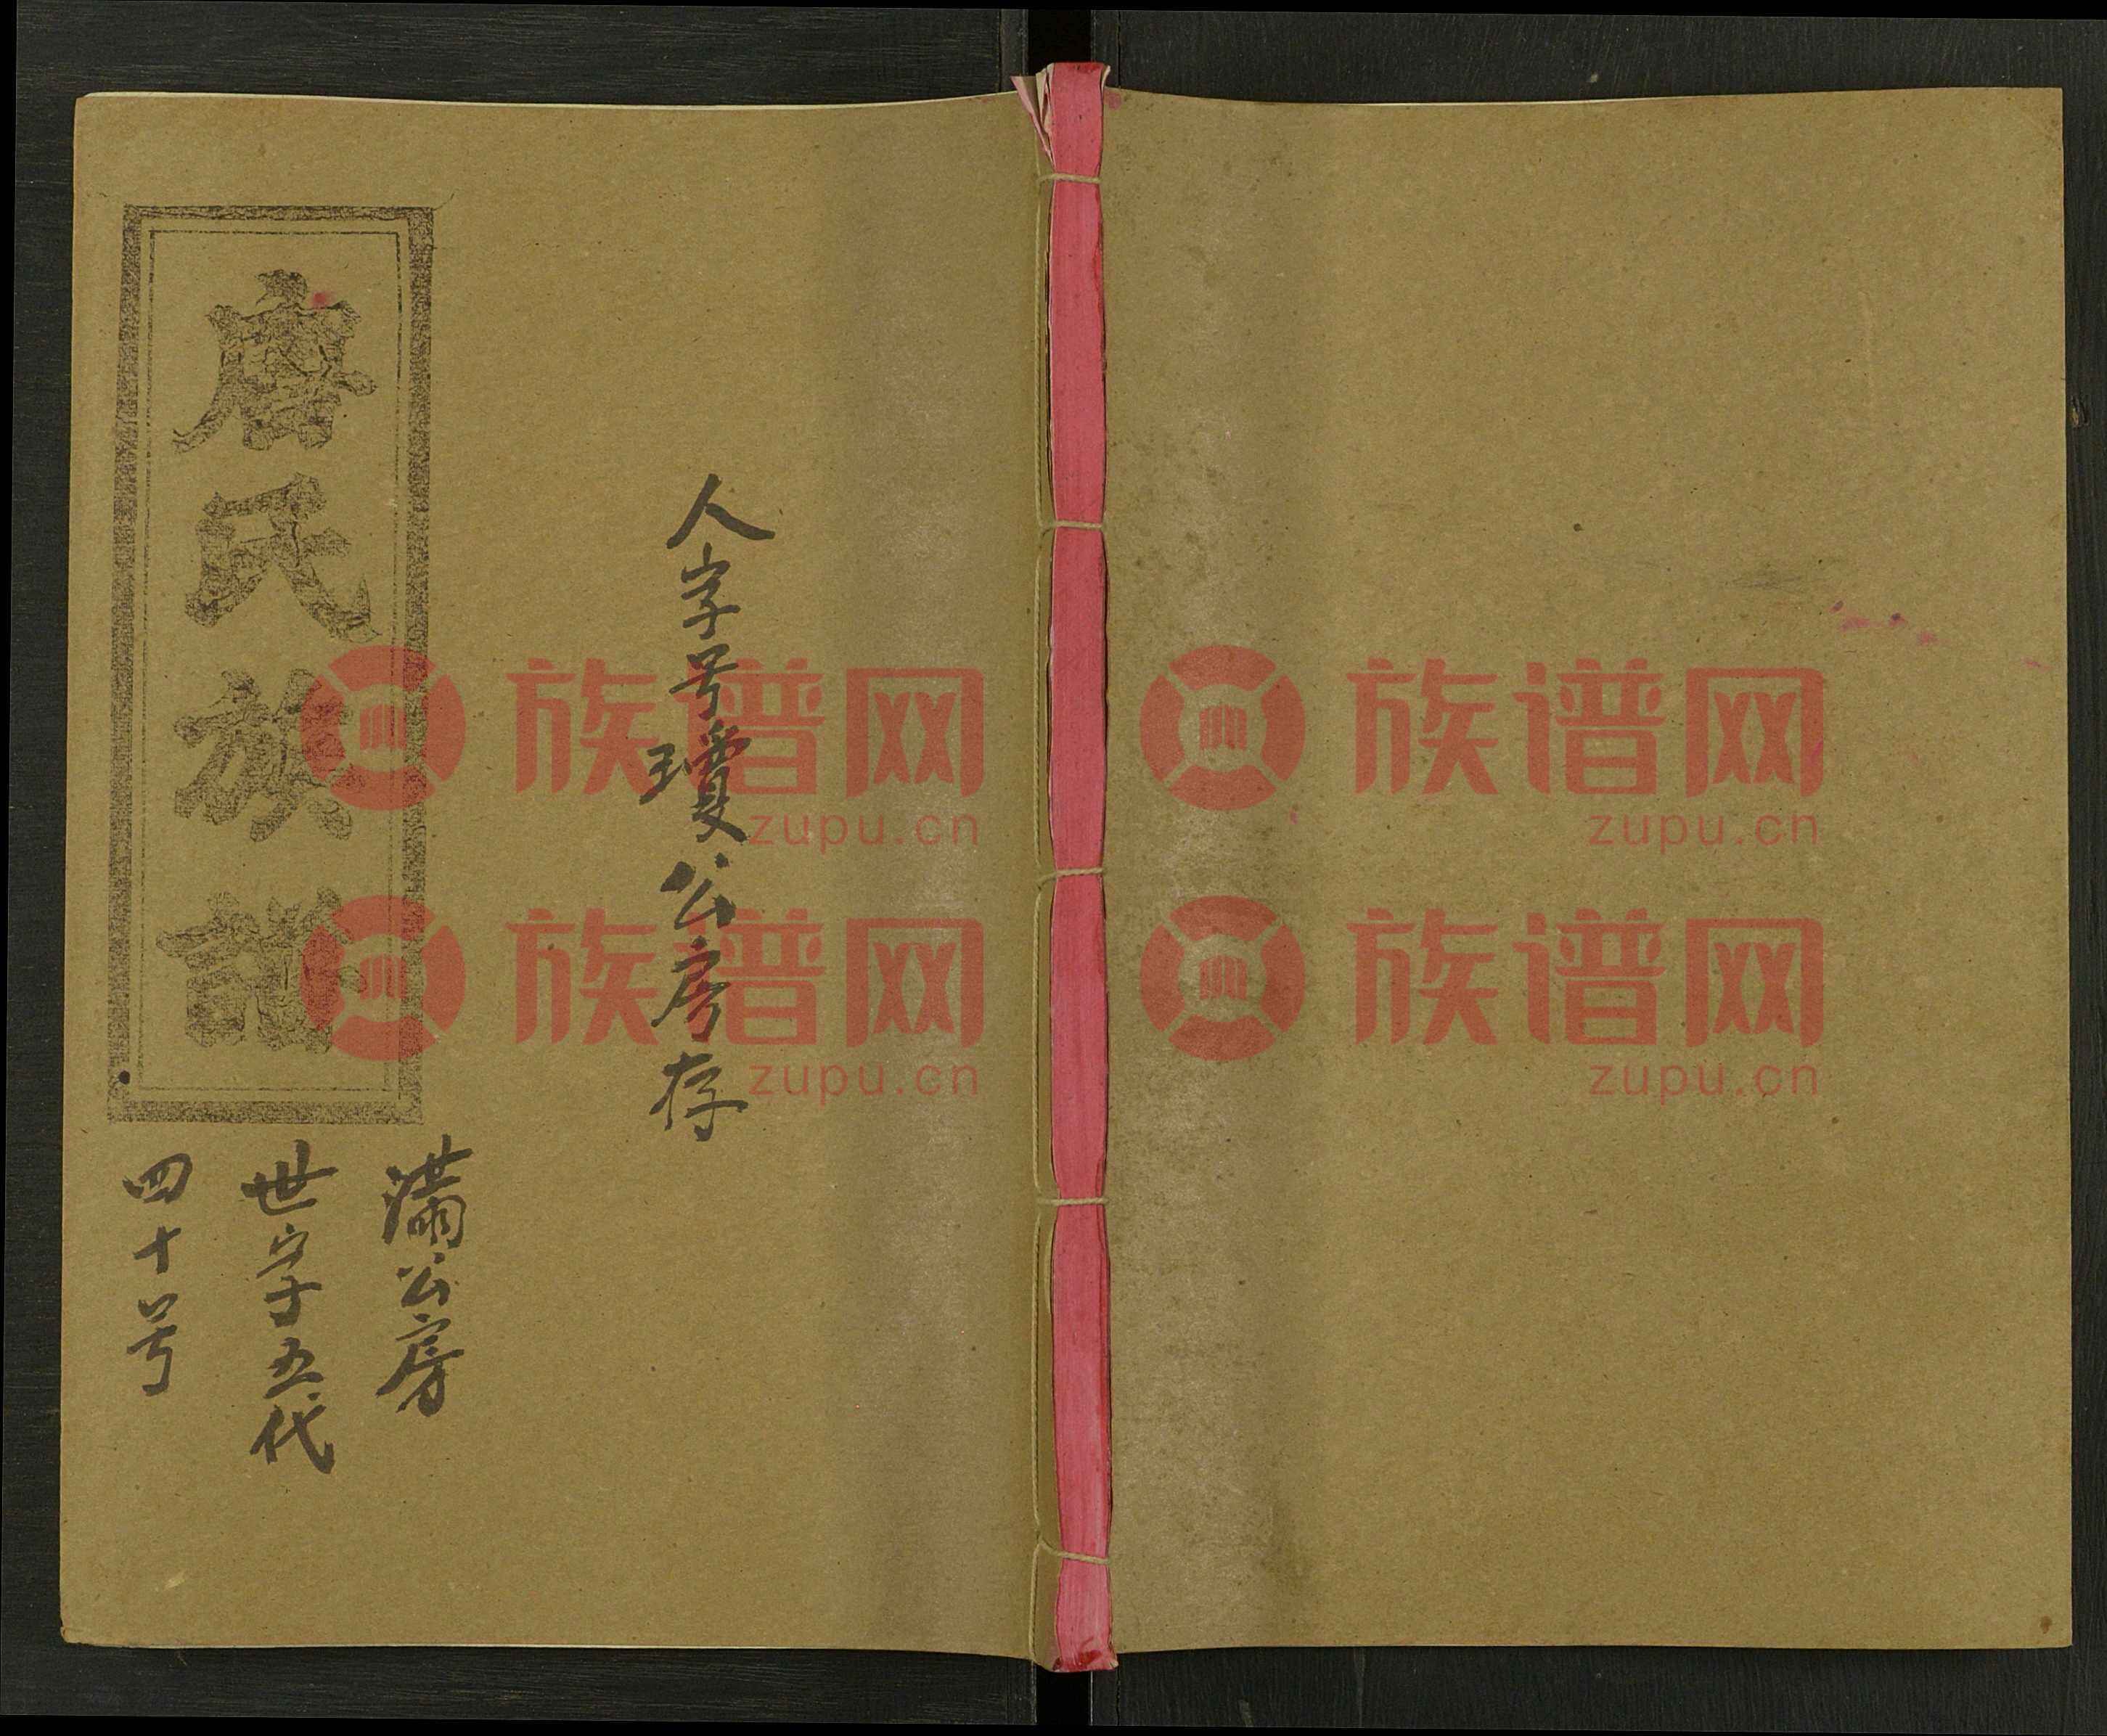 人字号瓊公房存
唐氏族譜
滿公房
世字五代
四十号
族谱网
zupu.cn
族谱网
zupu.cn
族谱网
zupu.cn
族谱网
zupu.cn